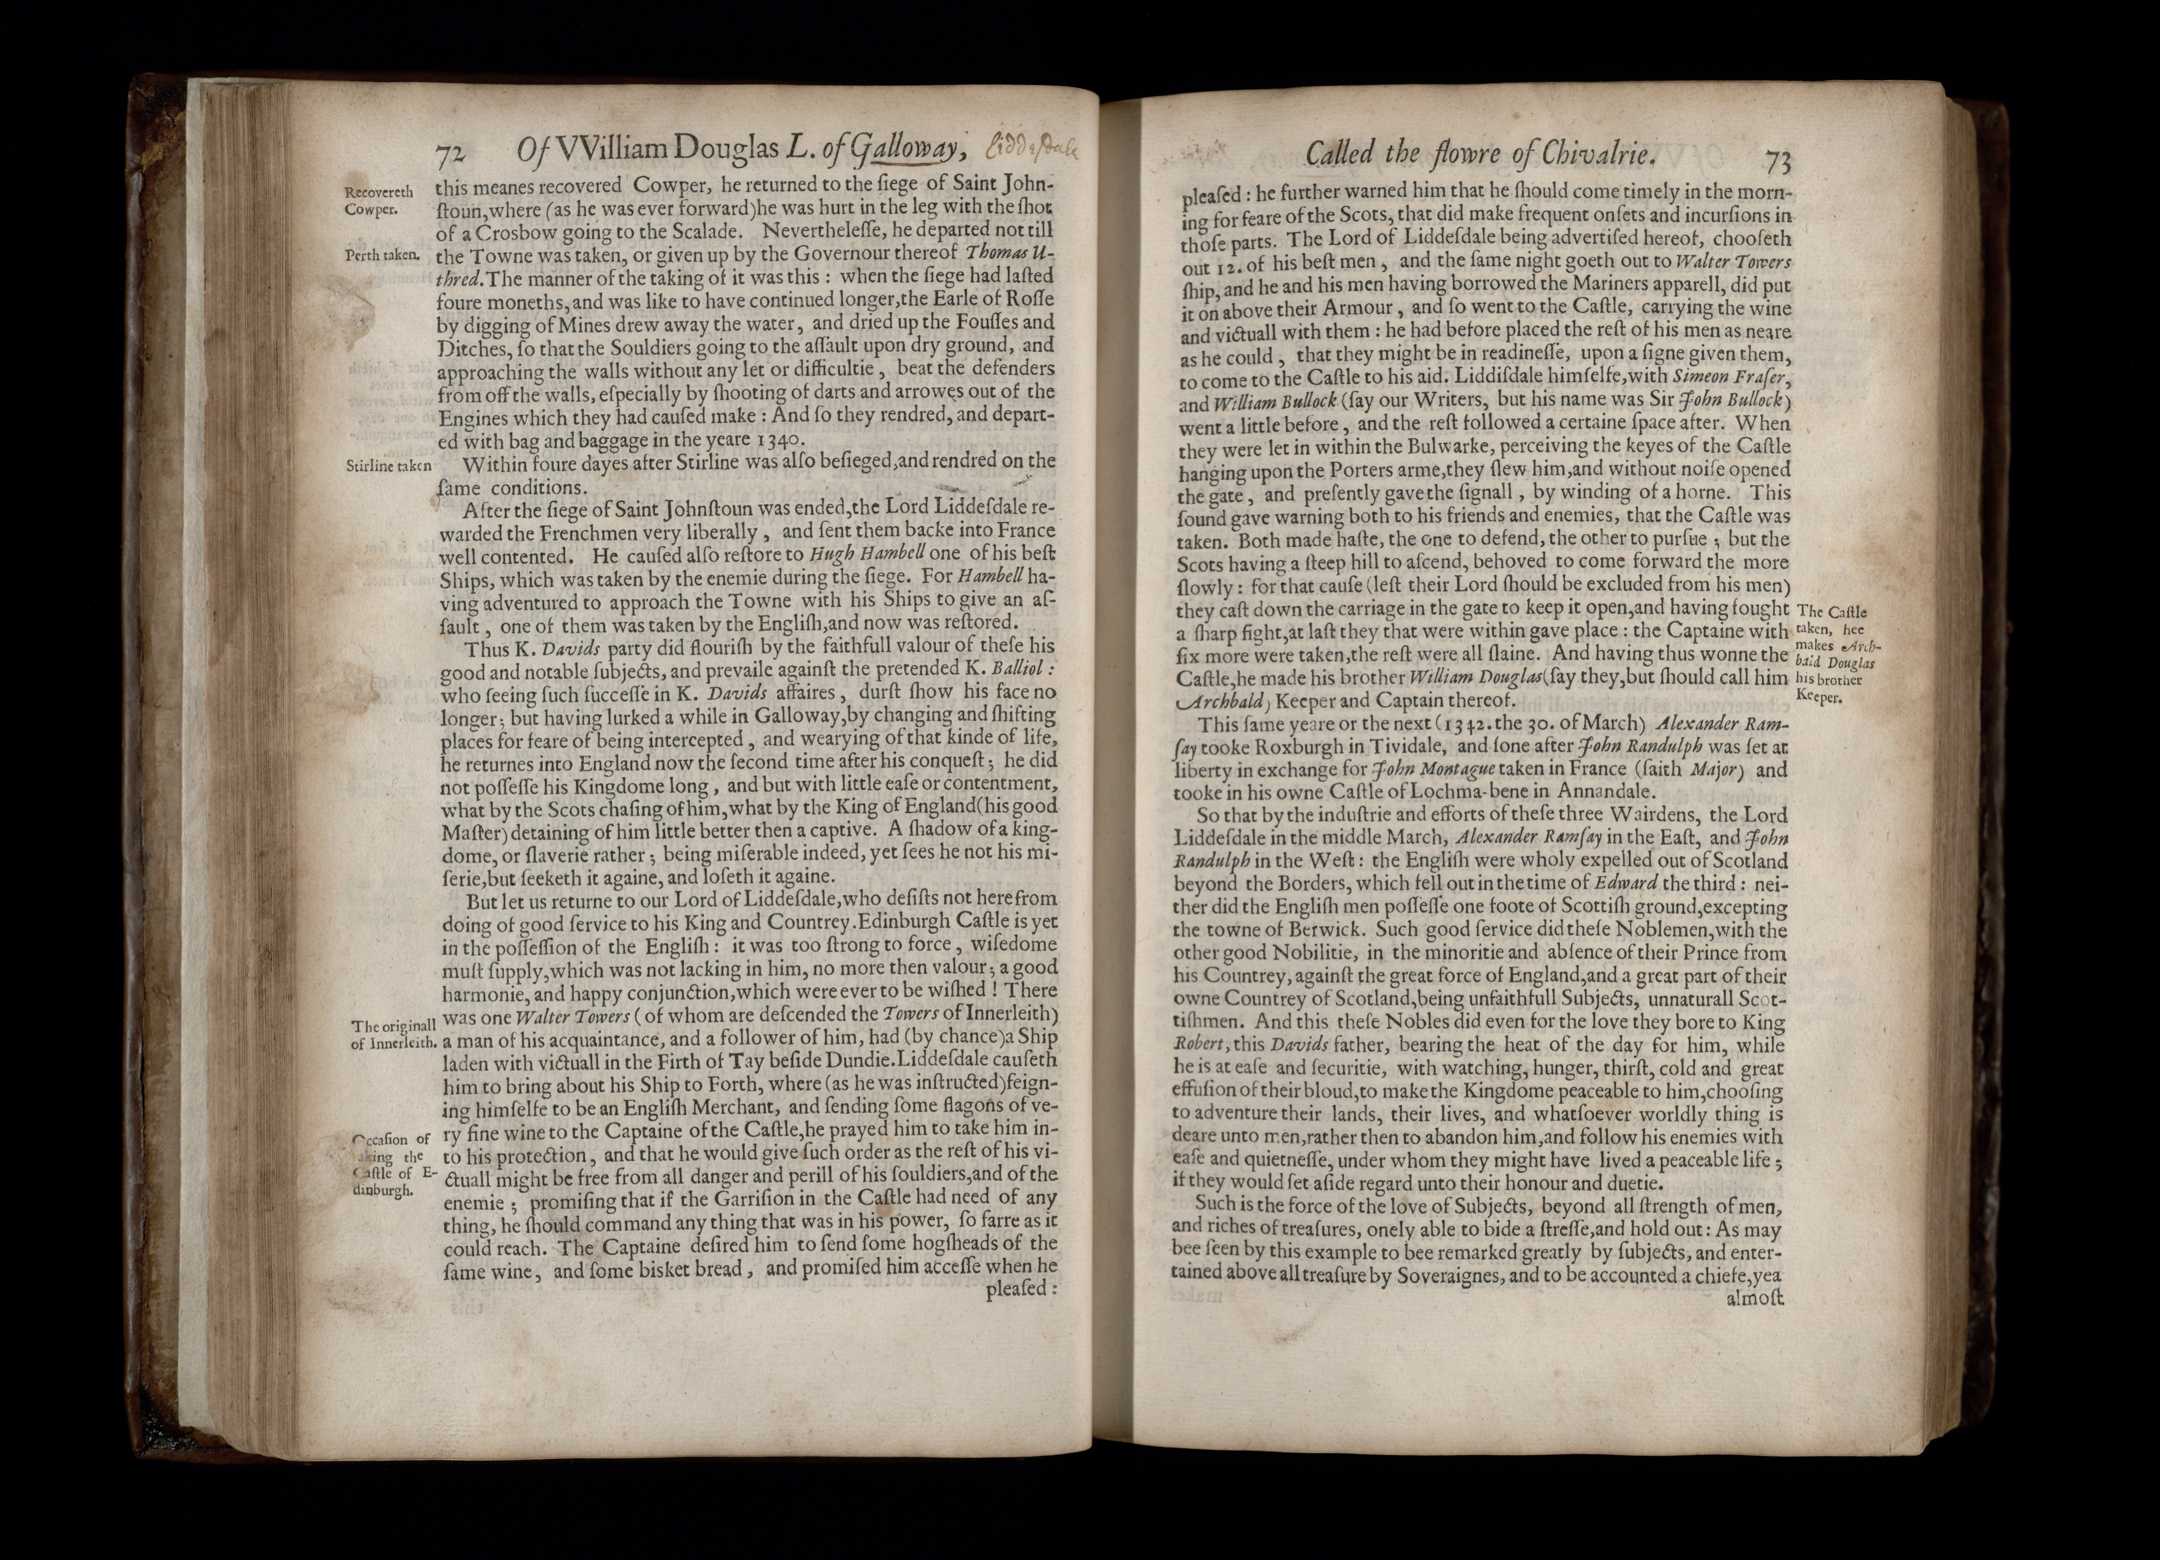 72 Of VVilliam Douglas L. of Galloway, Liddeſdale
Recovereth
Cowper.
this meanes recovered Cowper, he returned to the ſiege of Saint John-
ſtoun,where (as he was ever forward)he was hurt in the leg with the ſhot
of a Crosbow going to the Scalade. Nevertheleſſe, he departed not till
Perth taken.
the Towne was taken, or given up by the Governour thereof Thomas U-
thred.The manner of the taking of it was this : when the ſiege had laſted
foure moneths,and was like to have continued longer,the Earle of Roſſe
by digging of Mines drew away the water, and dried up the Fouſſes and
Ditches, ſo that the Souldiers going to the aſſault upon dry ground, and
approaching the walls without any let or difficultie, beat the defenders
from off the walls, eſpecially by ſhooting of darts and arrowes out of the
Engines which they had cauſed make : And ſo they rendred, and depart-
ed with bag and baggage in the yeare 1340.
Stirline taken
Within foure dayes after Stirline was alſo beſieged,and rendred on the
ſame conditions.
After the ſiege of Saint Johnſtoun was ended,the Lord Liddeſdale re-
warded the Frenchmen very liberally, and ſent them backe into France
well contented. He cauſed alſo reſtore to Hugh Hambell one of his beſt
Ships, which was taken by the enemie during the ſiege. For Hambell ha-
ving adventured to approach the Towne with his Ships to give an aſ-
ſault, one of them was taken by the Engliſh,and now was reſtored.
Thus K. Davids party did flouriſh by the faithfull valour of theſe his
good and notable ſubjects, and prevaile againſt the pretended K. Balliol :
who ſeeing ſuch ſucceſſe in K. Davids affaires, durſt ſhow his face no
longer; but having lurked a while in Galloway,by changing and ſhifting
places for feare of being intercepted, and wearying of that kinde of life,
he returnes into England now the ſecond time after his conqueſt; he did
not poſſeſſe his Kingdome long, and but with little eaſe or contentment,
what by the Scots chaſing of him,what by the King of England(his good
Maſter) detaining of him little better then a captive. A ſhadow of a king-
dome, or ſlaverie rather; being miſerable indeed, yet ſees he not his mi-
ſerie,but ſeeketh it againe, and loſeth it againe.
But let us returne to our Lord of Liddeſdale,who deſiſts not here from
doing of good ſervice to his King and Countrey.Edinburgh Caſtle is yet
in the poſſeſſion of the Engliſh : it was too ſtrong to force, wiſedome
muſt ſupply,which was not lacking in him, no more then valour; a good
harmonie, and happy conjunction,which were ever to be wiſhed ! There
The originall
of Innerleith.
was one Walter Towers (of whom are deſcended the Towers of Innerleith)
a man of his acquaintance, and a follower of him, had (by chance)a Ship
laden with victuall in the Firth of Tay beſide Dundie.Liddeſdale cauſeth
him to bring about his Ship to Forth, where (as he was inſtructed)feign-
ing himſelfe to be an Engliſh Merchant, and ſending ſome flagons of ve-
Occaſion of
taking the
Caſtle of E-
dinburgh.
ry fine wine to the Captaine of the Caſtle,he prayed him to take him in-
to his protection, and that he would give ſuch order as the reſt of his vi-
ctuall might be free from all danger and perill of his ſouldiers,and of the
enemie ; promiſing that if the Garriſion in the Caſtle had need of any
thing, he ſhould command any thing that was in his power, ſo farre as it
could reach. The Captaine deſired him to ſend ſome hogſheads of the
ſame wine, and ſome bisket bread, and promiſed him acceſſe when he
pleaſed :
Called the flowre of Chivalrie. 73
pleaſed : he further warned him that he ſhould come timely in the morn-
ing for feare of the Scots, that did make frequent onſets and incurſions in
thoſe parts. The Lord of Liddeſdale being advertiſed hereof, chooſeth
out 12. of his beſt men, and the ſame night goeth out to Walter Towers
ſhip, and he and his men having borrowed the Mariners apparell, did put
it on above their Armour, and ſo went to the Caſtle, carrying the wine
and victuall with them : he had before placed the reſt of his men as neare
as he could, that they might be in readineſſe, upon a ſigne given them,
to come to the Caſtle to his aid. Liddiſdale himſelfe,with Simeon Fraſer,
and William Bullock (ſay our Writers, but his name was Sir John Bullock)
went a little before, and the reſt followed a certaine ſpace after. When
they were let in within the Bulwarke, perceiving the keyes of the Caſtle
hanging upon the Porters arme,they ſlew him,and without noiſe opened
the gate, and preſently gave the ſignall, by winding of a horne. This
ſound gave warning both to his friends and enemies, that the Caſtle was
taken. Both made haſte, the one to defend, the other to purſue ; but the
Scots having a ſteep hill to aſcend, behoved to come forward the more
ſlowly : for that cauſe (leſt their Lord ſhould be excluded from his men)
they caſt down the carriage in the gate to keep it open,and having fought
a ſharp fight,at laſt they that were within gave place : the Captaine with
ſix more were taken,the reſt were all ſlaine. And having thus wonne the
Caſtle,he made his brother William Douglas(ſay they,but ſhould call him
Archbald) Keeper and Captain thereof.
The Caſtle
taken, hee
makes Arch-
bald Douglas
his brother
Keeper.
This ſame yeare or the next (1342. the 30. of March) Alexander Ram-
ſay tooke Roxburgh in Tividale, and ſone after John Randulph was ſet at
liberty in exchange for John Montague taken in France (ſaith Major) and
tooke in his owne Caſtle of Lochma-bene in Annandale.
So that by the induſtrie and efforts of theſe three Wairdens, the Lord
Liddeſdale in the middle March, Alexander Ramſay in the Eaſt, and John
Randulph in the Weſt : the Engliſh were wholy expelled out of Scotland
beyond the Borders, which fell out in the time of Edward the third : nei-
ther did the Engliſh men poſſeſſe one foote of Scottiſh ground,excepting
the towne of Berwick. Such good ſervice did theſe Noblemen,with the
other good Nobilitie, in the minoritie and abſence of their Prince from
his Countrey, againſt the great force of England,and a great part of their
owne Countrey of Scotland,being unfaithfull Subjects, unnaturall Scot-
tiſhmen. And this theſe Nobles did even for the love they bore to King
Robert, this Davids father, bearing the heat of the day for him, while
he is at eaſe and ſecuritie, with watching, hunger, thirſt, cold and great
effuſion of their bloud,to make the Kingdome peaceable to him,chooſing
to adventure their lands, their lives, and whatſoever worldly thing is
deare unto men,rather then to abandon him,and follow his enemies with
eaſe and quietneſſe, under whom they might have lived a peaceable life ;
if they would ſet aſide regard unto their honour and duetie.
Such is the force of the love of Subjects, beyond all ſtrength of men,
and riches of treaſures, onely able to bide a ſtreſſe,and hold out : As may
bee ſeen by this example to bee remarked greatly by ſubjects, and enter-
tained above all treaſure by Soveraignes, and to be accounted a chiefe,yea
almoſt